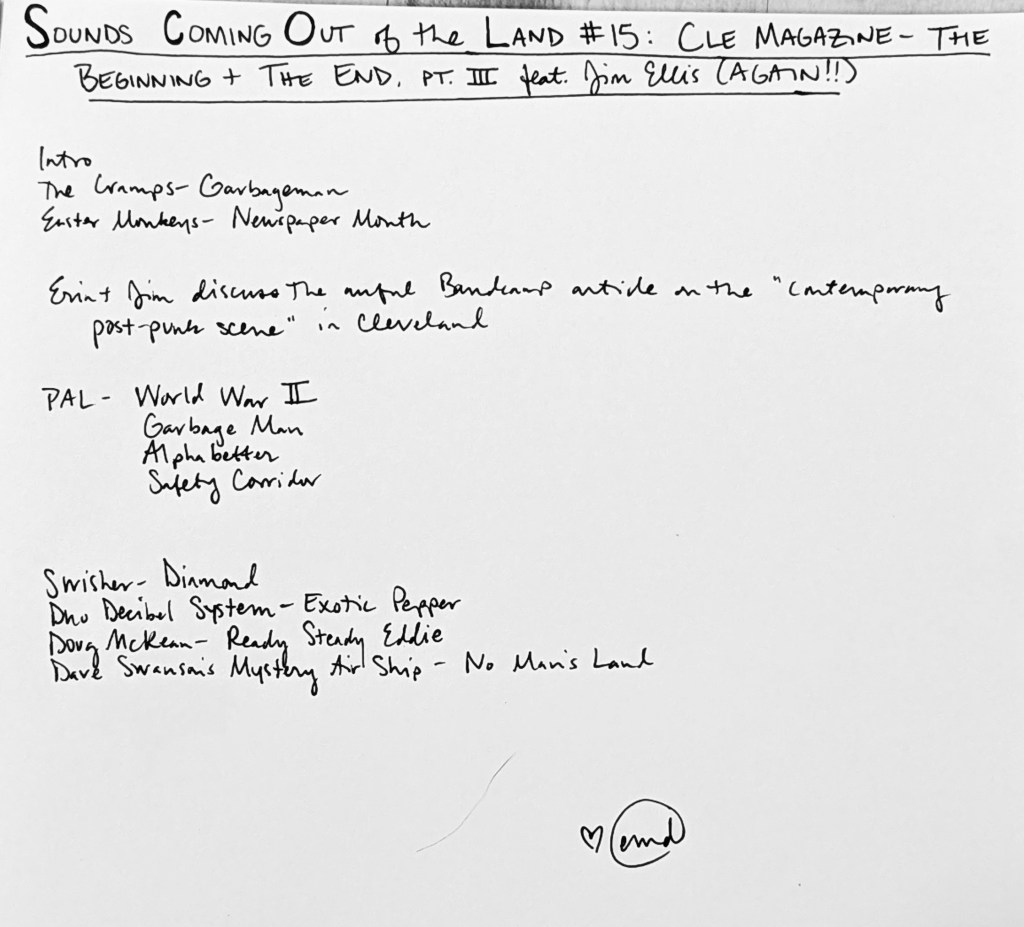 SOUNDS COMING OUT of the LAND #15: CLE MAGAZINE - THE
BEGINNING + THE END, PT. III feat. Jim Ellis (AGAIN!!)
Intro
The Cramps - Garbageman
Easter Monkeys - Newspaper Month
Erin + Jim discuss the awful Bandcamp article on the "contemporary
post-punk scene" in Cleveland
PAL - World War II
Garbage Man
Alphabetter
Safety Corridor
Swisher - Diamond
Duo Decibel System - Exotic Pepper
Doug McKean - Ready Steady Eddie
Dave Swanson's Mystery Air Ship - No Man's Land
♡ emd